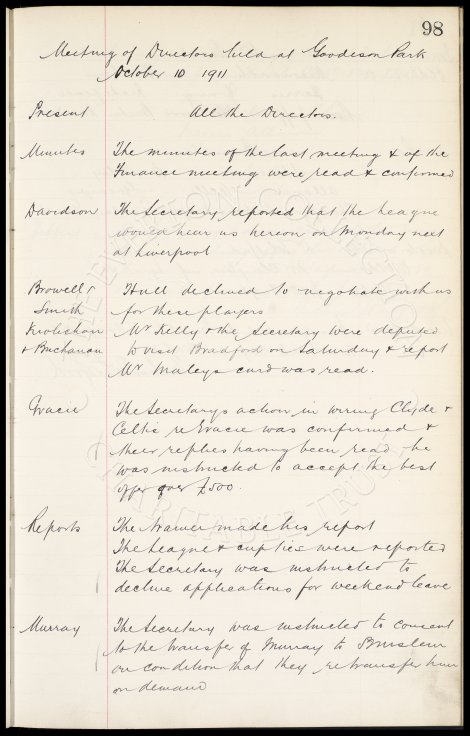 98
Meeting of Directors held at Goodison Park
October 10 1911
Present All the Directors.
Minutes The minutes of the last meeting & of the
Finance meeting were read & confirmed
Davidson The Secretary reported that the League
would hear us hereon on Monday next
at Liverpool
Browell & Hull declined to negotiate with us
Smith for these players
& Buchanan Mr Kelly & the Secretary were deputed
to visit Bradford on Saturday & report
Mr Maleys card was read.
Gracie The Secretarys action in wiring Clyde &
Celtic re Gracie was confirmed &
their replies having been read he
was instructed to accept the best
offer over £500.
Reports The Trainer made his report
The League & cup ties were reported
The Secretary was instructed to
decline applications for weekend leave
Murray The Secretary was instructed to consent
to the transfer of Murray to Burslem
on condition that they retransfer him
on demand